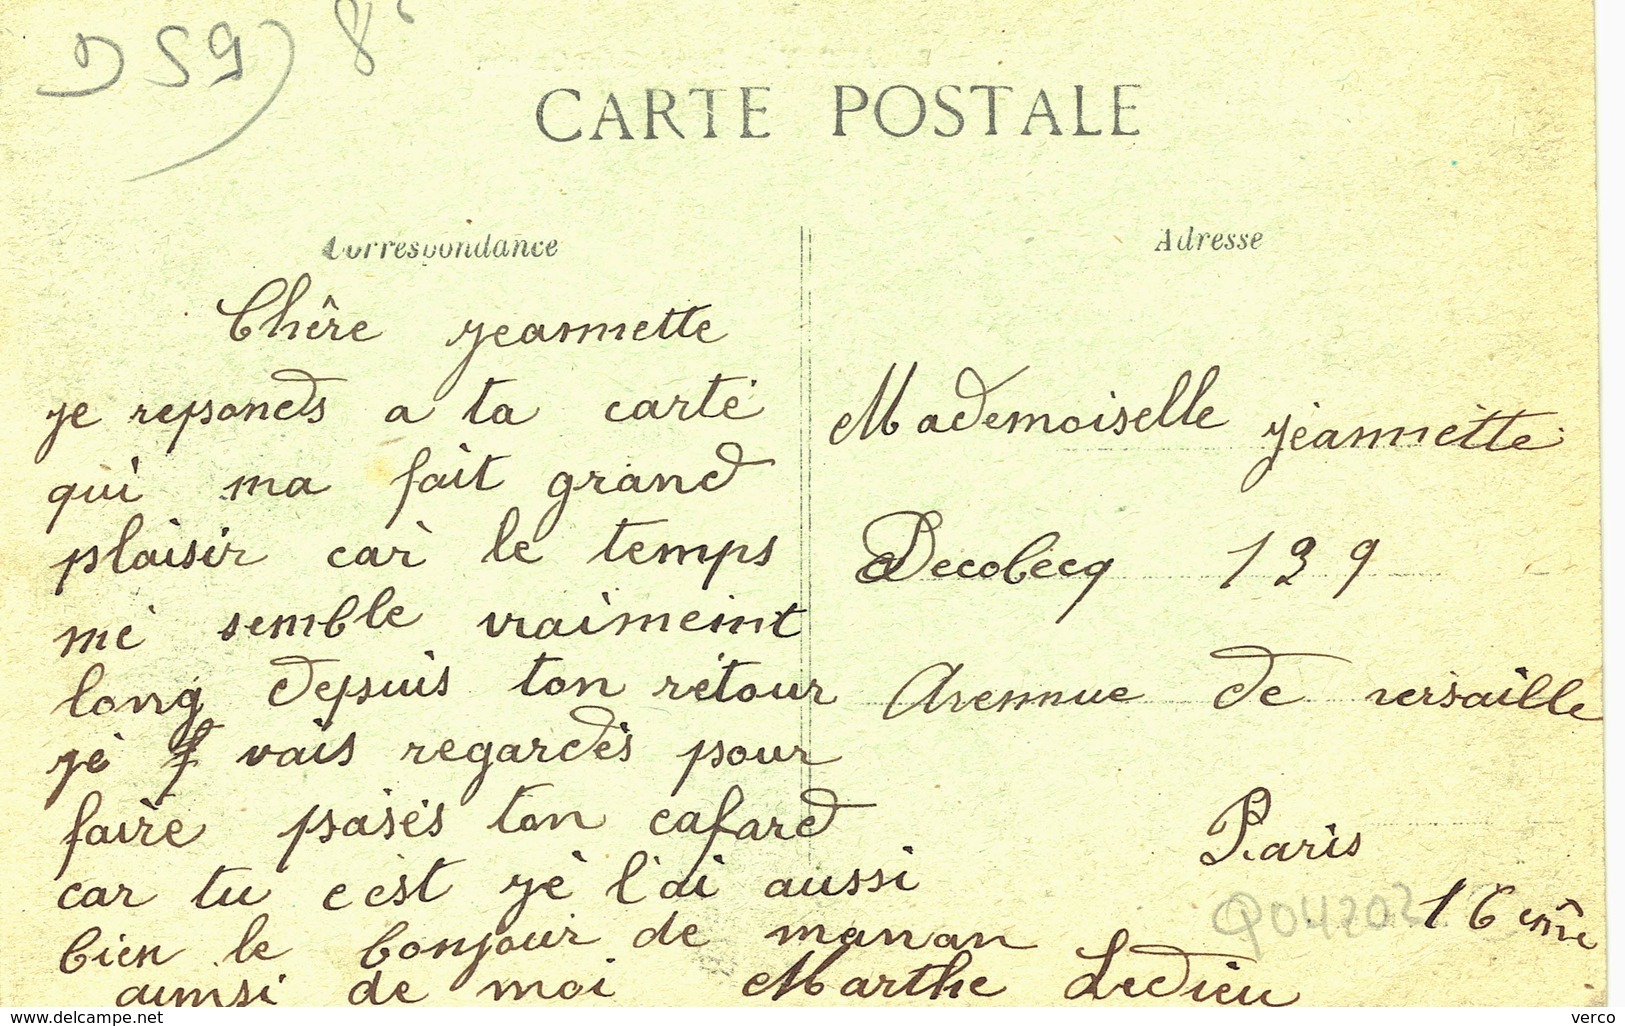 D 59) 8
CARTE POSTALE
Correspondance
Chère jeannette
je reponds a ta carte
qui ma fait grand
plaisir car le temps
me semble vraiment
long depuis ton retour
je vais regardes pour
faire pases ton cafard
car tu c est je l'ai aussi
bien le bonjour de manan
ainsi de moi Marthe Ledieu
Adresse
Mademoiselle jeannette
Decobecq 139
Avennue de versaille
Paris
16 eme
www.delcampe.net
verco